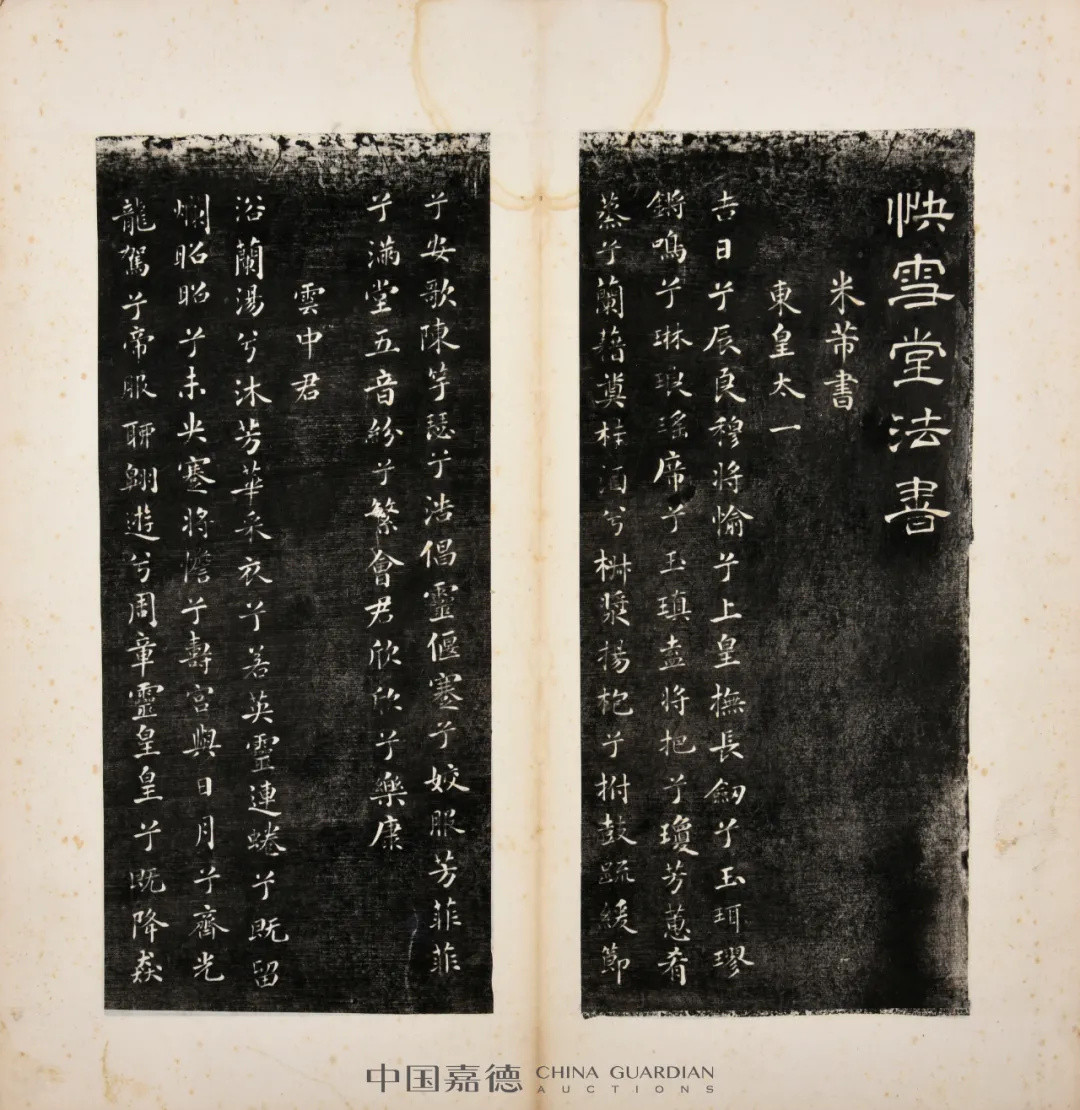 快雪堂法書
米芾書
東皇太一
吉日兮辰良穆將愉兮上皇撫長劒兮玉珥璆
鏘鳴兮琳琅瑤席兮玉瑱盍將把兮瓊芳蕙肴
蒸兮蘭藉奠桂酒兮椒漿揚枹兮拊鼓疏緩節
兮安歌陳竽瑟兮浩倡靈偃蹇兮姣服芳菲菲
兮滿堂五音紛兮繁會君欣欣兮樂康
雲中君
浴蘭湯兮沐芳華采衣兮若英靈連蜷兮既留
爛昭昭兮未央蹇將憺兮壽宮與日月兮齊光
龍駕兮帝服聊翱遊兮周章靈皇皇兮既降猋
中国嘉德 CHINA GUARDIAN
AUCTIONS